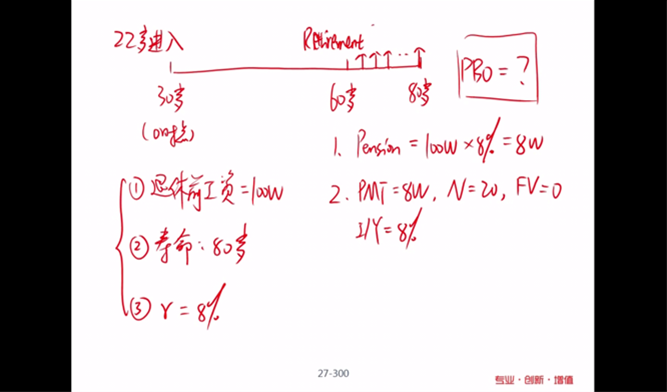 22岁进入
Retirement
PBO = ?
30岁
60岁
80岁
(0时点)
1. Pension = 100W × 8% = 8W
① 退休前工资 = 100W
2. PMT = 8W, N = 20, FV = 0
I/Y = 8%
② 寿命: 80岁
③ r = 8%
27-300
专业·创新·增值